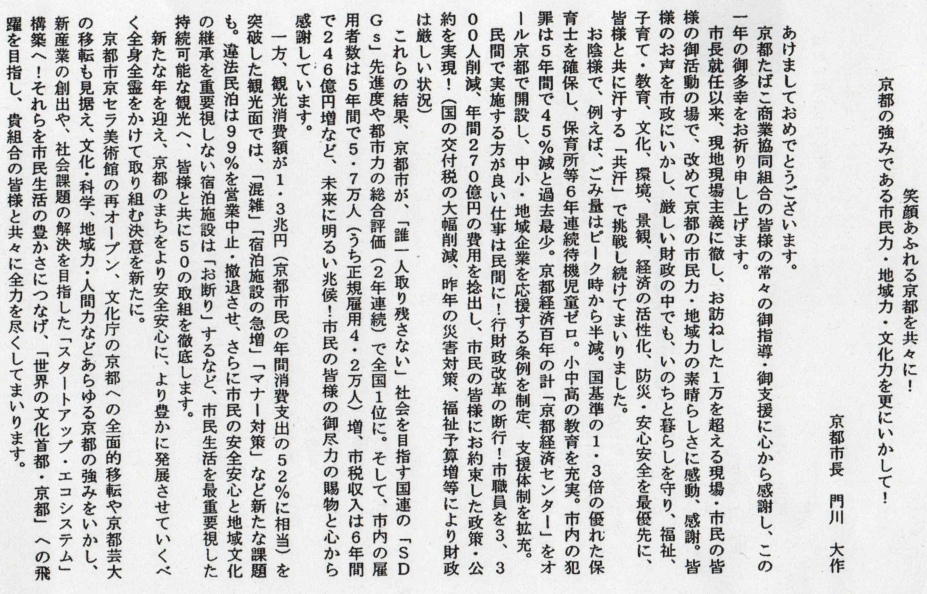 笑顔あふれる京都を共々に！
京都の強みである市民力・地域力・文化力を更にいかして！
京都市長　門川　大作
あけましておめでとうございます。
京都たばこ商業協同組合の皆様の常々の御指導・御支援に心から感謝し、この
一年の御多幸をお祈り申し上げます。
市長就任以来、現地現場主義に徹し、お訪ねした１万を超える現場・市民の皆
様の御活動の場で、改めて京都の市民力・地域力の素晴らしさに感動、感謝。皆
様のお声を市政にいかし、厳しい財政の中でも、いのちと暮らしを守り、福祉、
子育て・教育、文化、環境、景観、経済の活性化、防災・安心安全を最優先に、
皆様と共に汗する「共汗」で挑戦し続けてまいりました。
お陰様で、例えば、ごみ量はピーク時から半減。国基準の１・３倍の優れた保
育士を確保し、保育所等６年連続待機児童ゼロ。小中高の教育を充実。市内の犯
罪は５年間で４５％減と過去最少。京都経済百年の計「京都経済センター」をオ
ール京都で開設し、中小・地域企業を応援する条例を制定、支援体制を拡充。
民間で実施する方が良い仕事は民間に！行財政改革の断行！市職員を３，３
００人削減、年間２７０億円の費用を捻出し、市民の皆様にお約束した政策・公
約を実現！（国の交付税の大幅削減、昨年の災害対策、福祉予算増等により財政
は厳しい状況）
これらの結果、京都市が、「誰一人取り残さない」社会を目指す国連の「ＳＤ
Ｇｓ」先進度や都市力の総合評価（２年連続）で全国１位に。そして、市内の雇
用者数は５年間で５・７万人（うち正規雇用４・２万人）増、市税収入は６年間
で２４６億円増など、未来に明るい兆候！市民の皆様の御尽力の賜物と心から
感謝しています。
一方、観光消費額が１・３兆円（京都市民の年間消費支出の５２％に相当）を
突破した観光面では、「混雑」「宿泊施設の急増」「マナー対策」など新たな課題
も。違法民泊は９９％を営業中止・撤退させ、さらに市民の安全安心と地域文化
の継承を重要視しない宿泊施設は「お断り」するなど、市民生活を最重要視した
持続可能な観光へ、皆様と共に５０の取組を徹底します。
新たな年を迎え、京都のまちをより安全安心に、より豊かに発展させていくべ
く全身全霊をかけて取り組む決意を新たに。
京都市京セラ美術館の再オープン、文化庁の京都への全面的移転や京都芸大
の移転も見据え、文化・科学、地域力・人間力などあらゆる京都の強みをいかし、
新産業の創出や、社会課題の解決を目指した「スタートアップ・エコシステム」
構築へ！それらを市民生活の豊かさにつなげ、「世界の文化首都・京都」への飛
躍を目指し、貴組合の皆様と共々に全力を尽くしてまいります。